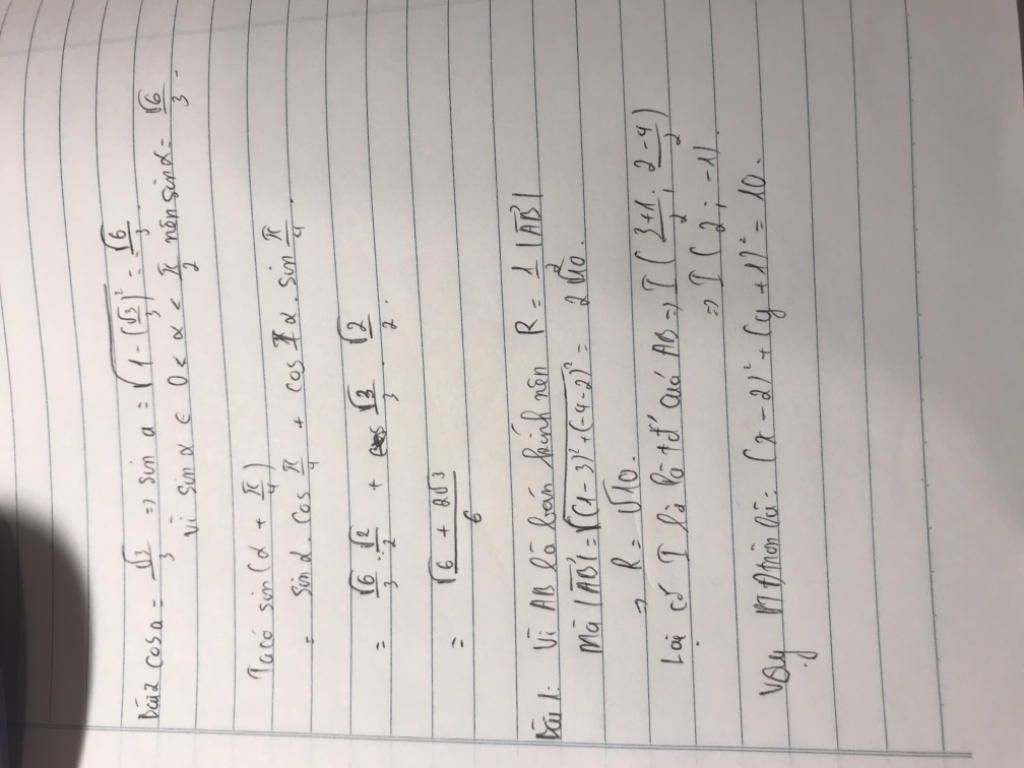 Bài 2 cos a = √3/3 => sin a = √(1 - (√3/3)²) = √6/3.
Vì sin α ∈ 0 < α < π/2 nên sin α = √6/3.
Ta có sin (α + π/4)
= sin α. cos π/4 + cos α. sin π/4.
= √6/3 . √2/2 + √3/3 . √2/2.
= √6 + 2√3 / 6
Bài 1: Vì AB là bán kính nên R = 1/2 |AB|
Mà |AB| = √((1-3)² + (-4-2)²) = 2√10.
=> R = √10.
Lại có I là tđ của AB => I (3+1/2 ; 2-4/2)
=> I (2 ; -1)
Vậy pt đ tròn là: (x - 2)² + (y + 1)² = 10.